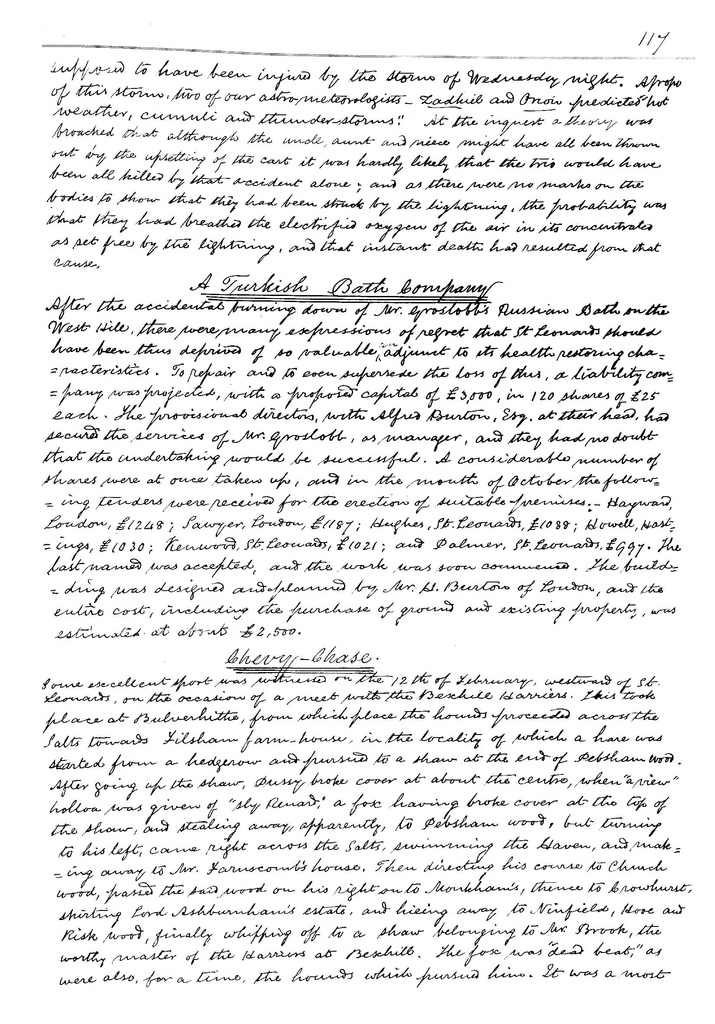 117
supposed to have been injured by the storm of Wednesday night. Apropo
of this storm, two of our astro-meteorologists – Zadkiel and Orion predicted "hot
weather, cumuli and thunder-storms". At the inquest a theory was
broached that although the uncle, aunt and niece might have all been thrown
out by the upsetting of the cart it was hardly likely that the trio would have
been all killed by that accident alone; and as there were no marks on the
bodies to show that they had been struck by the lightning, the probability was
that they had breathed the electrified oxygen of the air in its concentrated
as set free by the lightning, and that instant death had resulted from that
cause.
A Turkish Bath Company
After the accidental burning down of Mr. Groslobb's Russian Bath on the
West Hill, there were many expressions of regret that St Leonards should
have been thus deprived of so valuable an adjunct to its health restoring cha=
=racteristics. To repair and to even supersede the loss of this, a liability com=
=pany was projected, with a proposed capital of £3,000, in 120 shares of £25
each. The provisional directors, with Alfred Burton, Esq. at their head, had
secured the services of Mr. Groslobb, as manager, and they had no doubt
that the undertaking would be successful. A considerable number of
shares were at once taken up, and in the month of October the follow=
=ing tenders were received for the erection of suitable premises:– Hayward,
London, £1248; Sawyer, London, £1187; Hughes, St. Leonards, £1088; Howell, Hast=
=ings, £1030; Kenwood, St. Leonards, £1021; and Palmer, St. Leonards, £997. The
last named was accepted, and the work was soon commenced. The build=
=ding was designed and planned by Mr. H. Burton of London, and the
entire cost, including the purchase of ground and existing property, was
estimated at about £2,500.
Chevy-Chase.
Some excellent sport was witness on the 12th of February, westward of St.
Leonards, on the occasion of a meet with the Bexhill Harriers. This took
place at Bulverhithe, from which place the hounds proceeded across the
Salts towards Filsham farm-house, in the locality of which a hare was
started from a hedgerow and pursued to a shaw at the end of Pebsham Wood.
After going up the shaw, Pussy broke cover at about the centre, when "a view"
holloa was given of "sly Renard," a fox having broke cover at the top of
the shaw, and stealing away, apparently, to Pebsham wood, but turning
to his left, came right across the Salts, swimming the Haven, and mak=
=ing away to Mr. Farnscomb's house. Then directing his course to Church
wood, passed the said wood on his right on to Monkham's, thence to Crowhurst,
skirting Lord Ashburnham's estate, and hieing away to Ninfield, Hooe and
Kisk wood, finally whipping off to a shaw belonging to Mr. Brook, the
worthy master of the Harriers at Bexhill. The fox was "dead beat," as
were also, for a time, the hounds which pursued him. It was a most